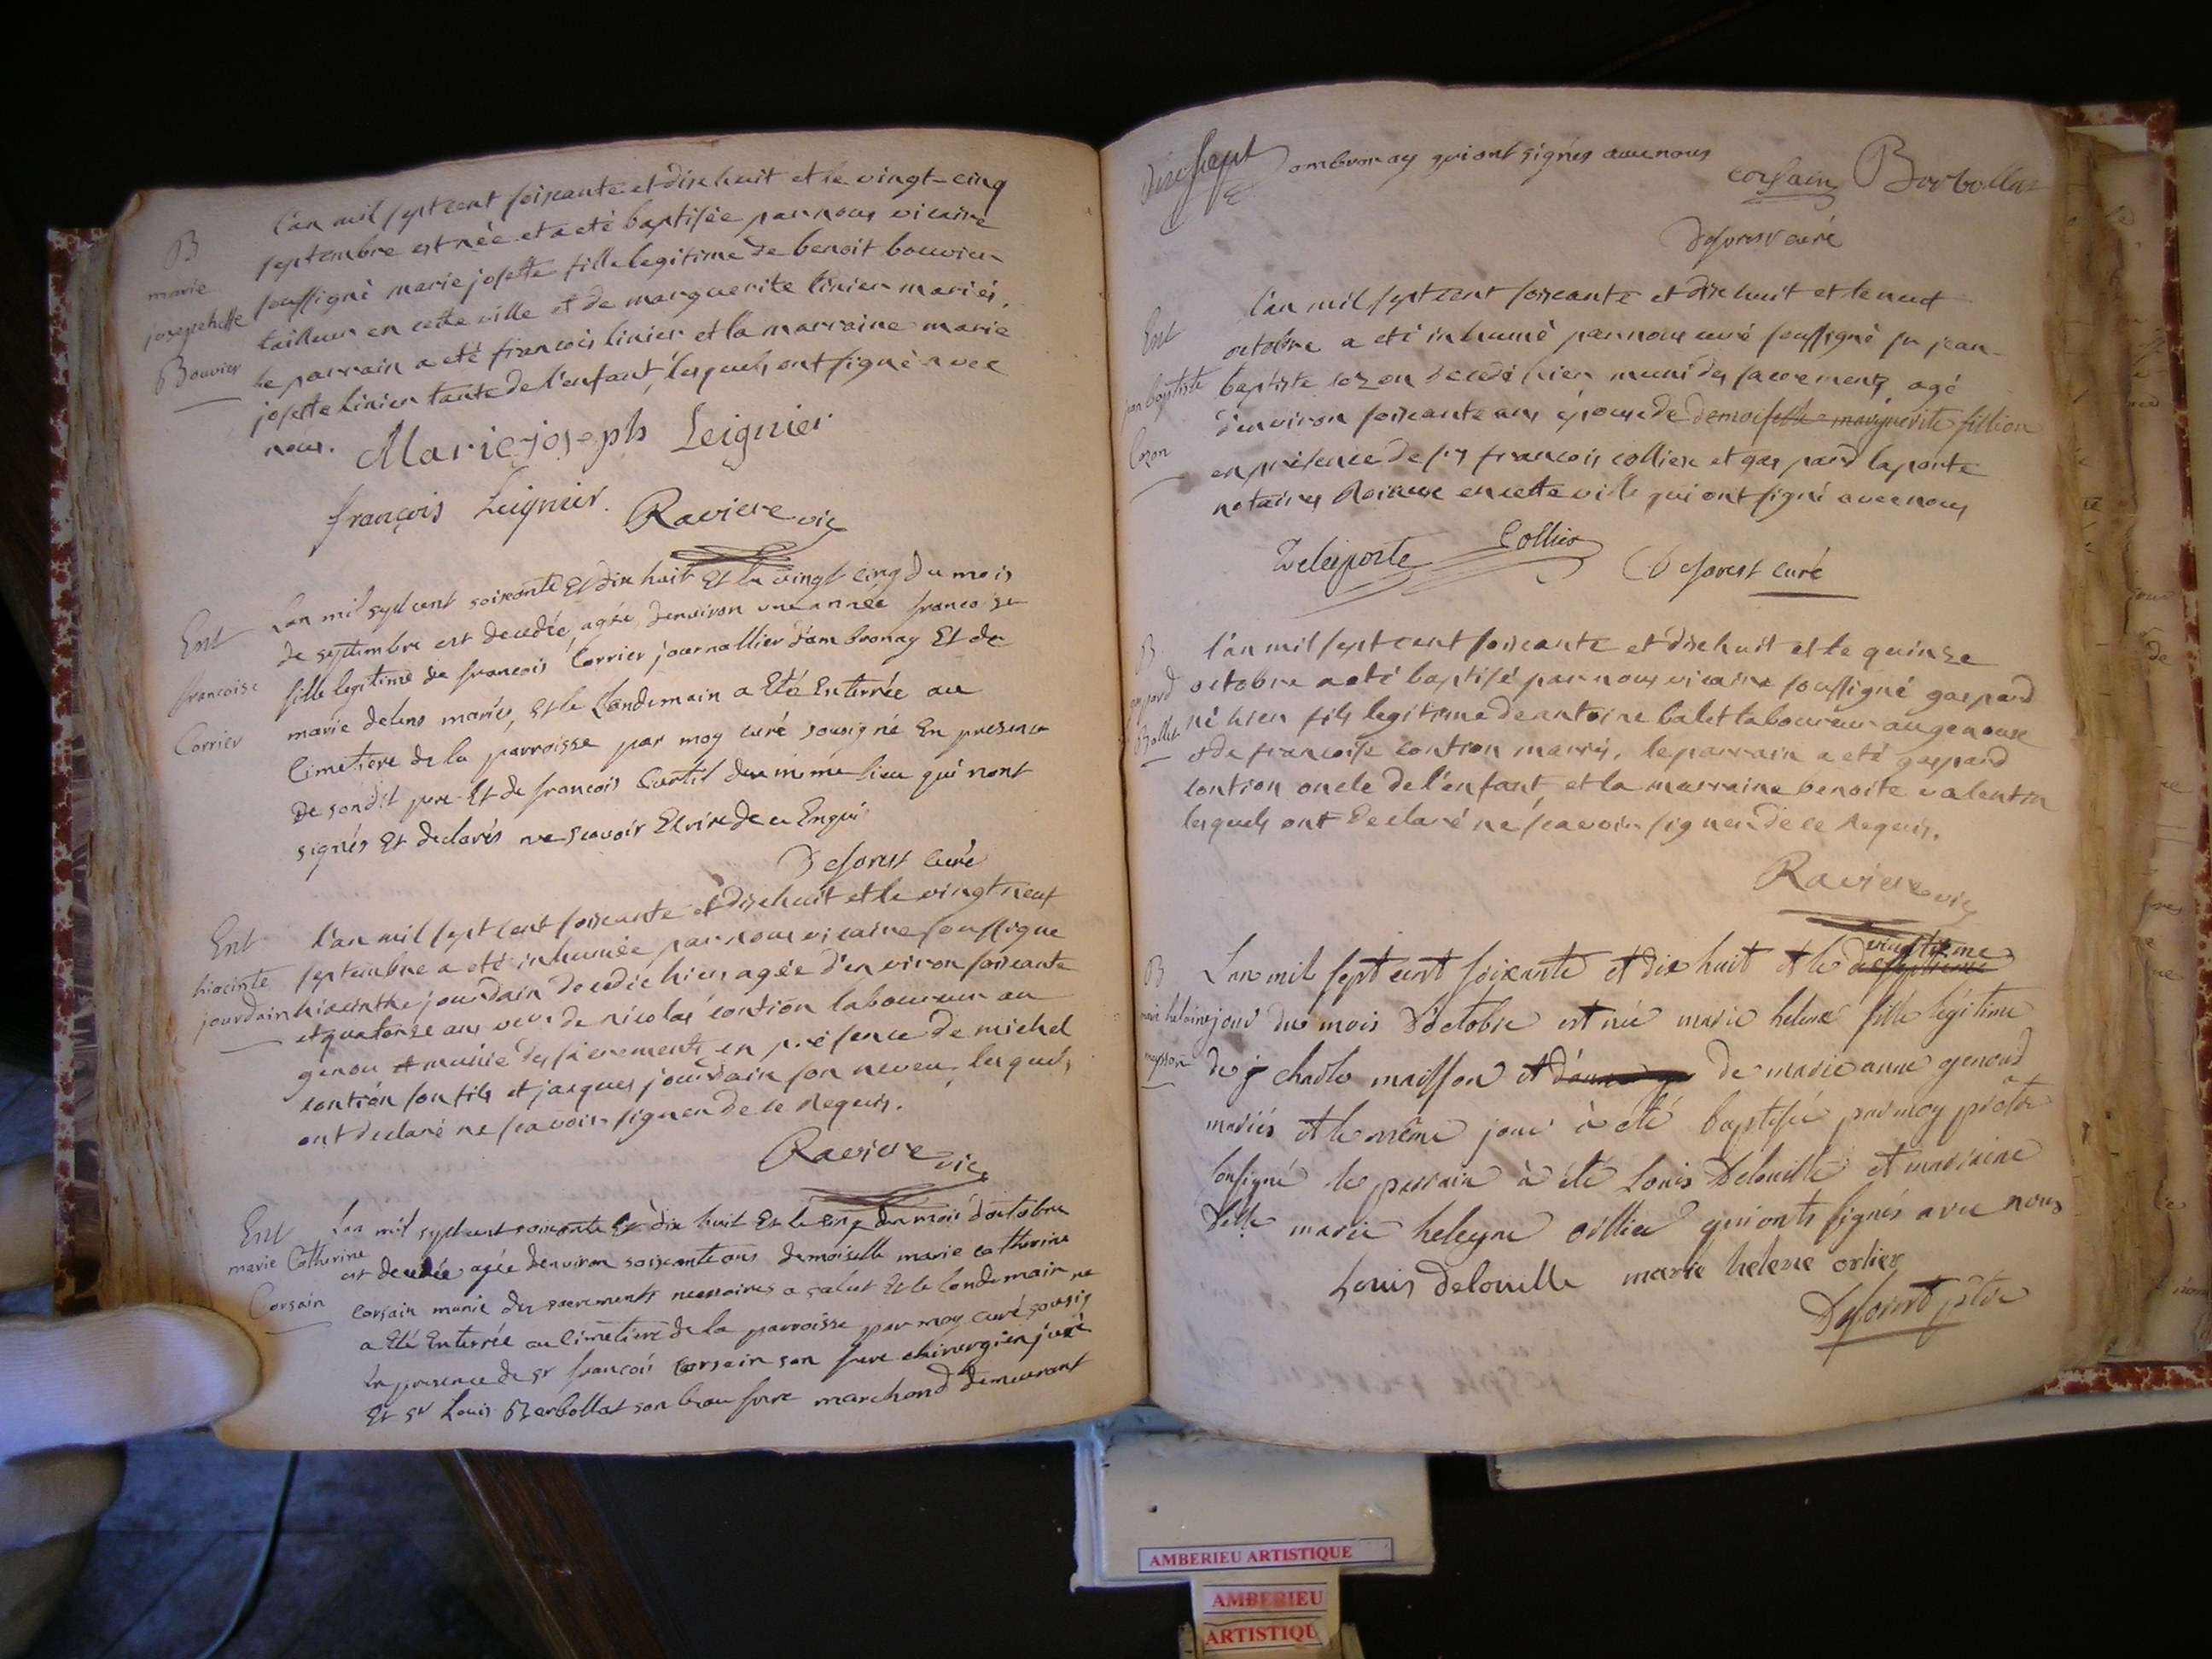 B
marie
josephtte
Bouvier
l'an mil sept cent soixante et dix huit et le vingt-cinq
septembre est née et a été baptisée par nous vicaire
soussigné marie josette fille legitime de benoit bouvier
tailleur en cette ville et de marguerite linier mariés.
le parrain a eté francois linier et la marraine marie
josette linier tante de l'enfant, lesquels ont signé avec
nous. Marie joseph Leignier
françois Leignier. Raviere vic
Ent
francoise
Corrier
Lan mil sept cent soixante Et dix huit Et le vingt cinq du mois
de septembre est decedée, agée denviron une année francoise
fille legitime de francois Corrier journallier d'ambronay Et de
marie delens mariés, Et le Landemain a Eté Enterrée au
Cimetiere de la parroisse par moy curé sousigné En presence
De son dit pere Et de francois Curtil du même lieu qui nont
signés Et declarés ne scavoir Ecrire de ce Enqui
Deforest curé
Ent
hiacinte
jourdain
l'an mil sept cent soixante et dix huit et le vingt neuf
septembre a eté inhumée par nous vicaire soussigne
hiacinthe jourdain decedée hier agée d'environ soixante
et quatorze ans veuve de nicolas contion laboureur au
genou et munie des sacrements en presence de michel
contion son fils et jacques jourdain son neveu, lesquels
ont declaré ne scavoir signer de ce Requis.
Raviere vic
Ent
marie Catherine
Corsain
Lan mil sept cent soixante Et dix huit Et le cinq du mois d'octobre
est decedée agée denviron soixante ans demoiselle marie catherine
corsain munie des sacrements necessaires a salut Et le landemain
a Eté Enterrée au Cimetiere de la parroisse par moy curé sousigné
En presence de sr francois Corsain son frere chirurgien juré
Et sr Louis Barbollat son beau frere marchand demeurant
dix sept
ambronay qui ont signés avec nous
corsain Borbollat
Deforest curé
Ent
jean baptiste
Cozon
l'an mil sept cent soixante et dix huit et le neuf
octobre a eté inhumé par nous curé soussigné sr jean-
baptiste cozon decedé hier muni des sacrements agé
d'environ soixante ans époux de demoiselle marguerite fillion
en présence de srs francois collier et gaspard laporte
notaires Roiaux en cette ville qui ont signé avec nous
Delaporte Collier Deforest curé
B
gaspard
Ballet
l'an mil sept cent soixante et dix huit et le quinze
octobre a eté baptisé par nous vicaire soussigné gaspard
né hier fils legitime de antoine balet laboureur au genoux
et de francoise contion mariés. le parrain a eté gaspard
contion oncle de l'enfant, et la marraine benoite valentin
lesquels ont declaré ne scavoir signer de ce Requis.
Raviere vic
B
marie helaine
maisson
Lan mil sept cent soixante et dix huit et le vingtieme
jour du mois d'octobre est née marie helene fille légitime
de j charles maisson et de marie anne genoud
mariés et le même jour à eté baptisée par moy prêtre
sousigné le parrain à été Louis Delouille et marraine
Delle marie heleyne orllier qui onts signés avec nous
Louis delouille marie helene orlier
Deforest ptre
AMBERIEU ARTISTIQUE
AMBERIEU
ARTISTIQU